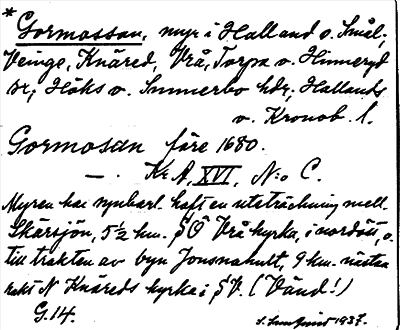 *
Gormossan, myr i Halland o. Smål.;
Veinge, Knäred, Vrå, Torpa o. Hinneryd
sr; Höks o. Sunnerbo hdr; Hallands
o. Kronob. l.
Gormosan före 1680.
—. K: A, XVI, N:o C.
Myren har synbarl. haft en utsträckning mell.
Skärsjön, 5½ km. SO Vrå kyrka, i nordost, o.
till trakten av byn Jonsnahult, 9 km. nästan
rakt N Knäreds kyrka i SV. (Vänd!)
G. 14.
1937.